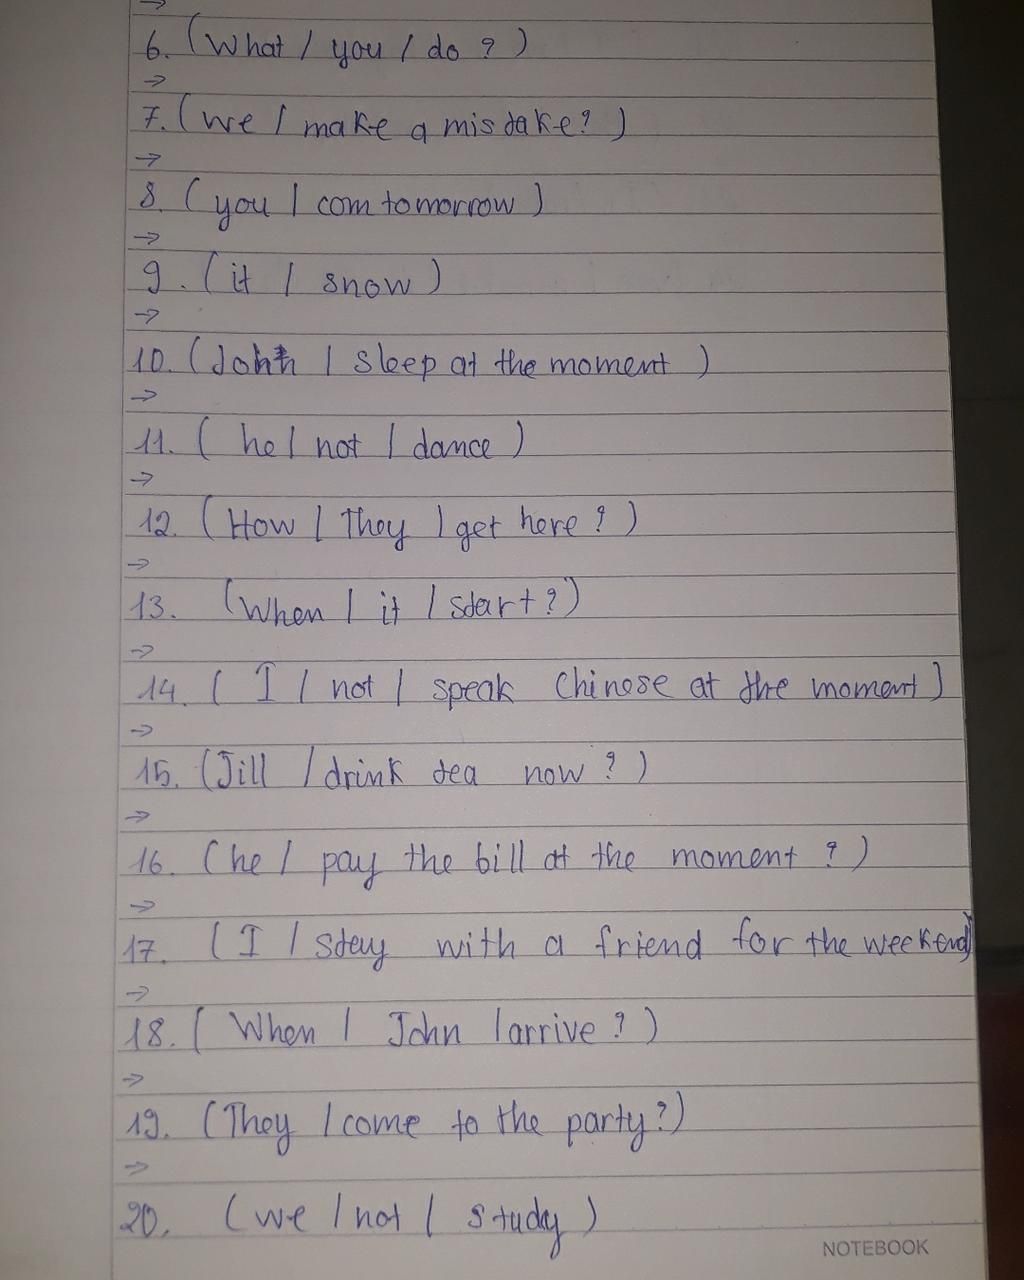 →
6. (What / you / do ? )
→
7. (we / make a mistake? )
→
8. ( you / com tomorrow )
→
9. ( it / snow )
→
10. (John / sleep at the moment )
→
11. ( he / not / dance )
→
12. (How / They / get here ? )
→
13. (When / it / start?)
→
14. ( I / not / speak Chinese at the moment )
→
15. (Jill / drink tea now ? )
→
16. (he / pay the bill at the moment ? )
→
17. ( I / stay with a friend for the weekend)
→
18. ( When / John / arrive ? )
→
19. (They / come to the party?)
→
20. (we / not / study )
NOTEBOOK